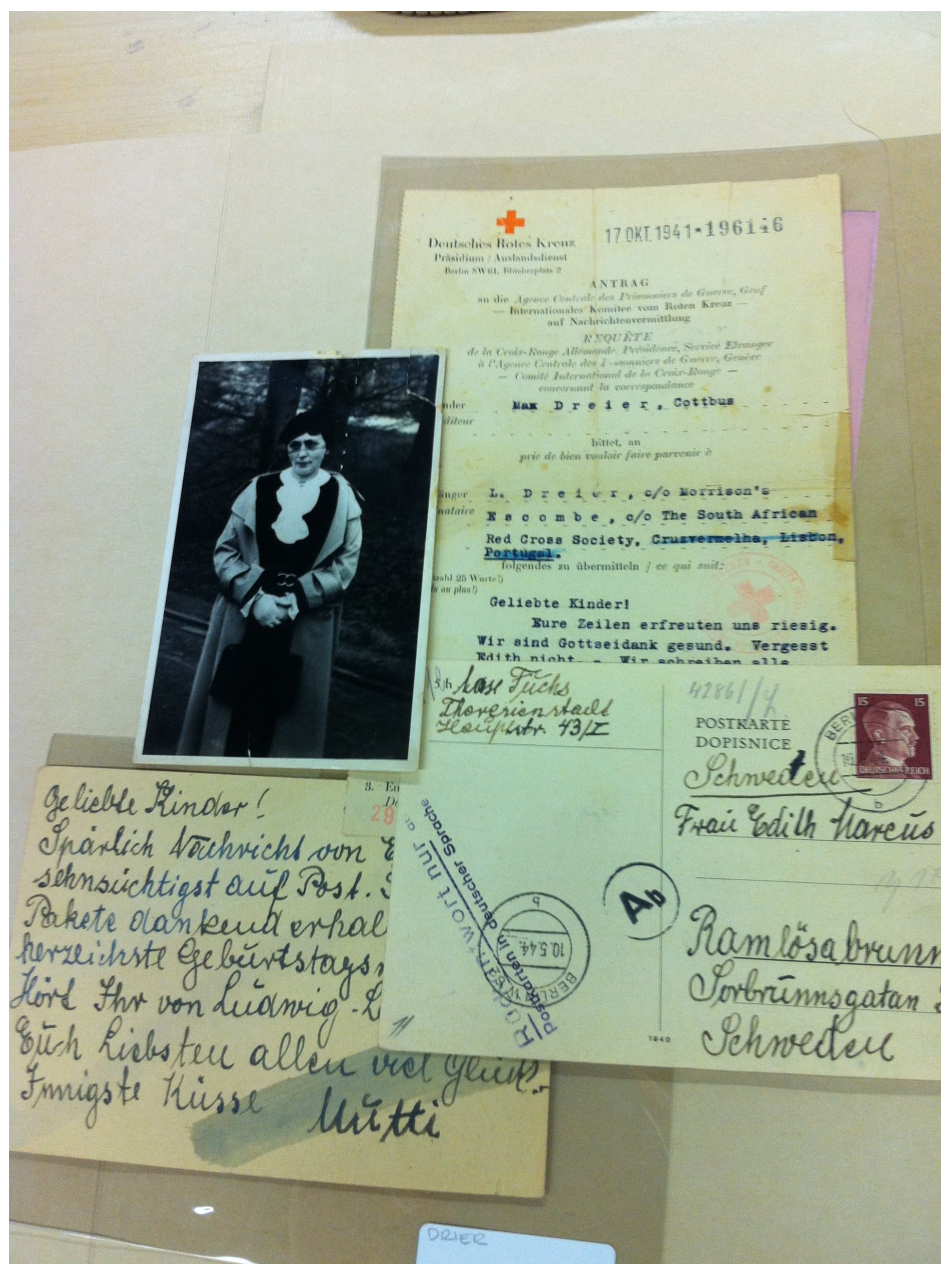 Deutsches Rotes Kreuz
Präsidium / Auslandsdienst
Berlin SW61, Blücherplatz 2
17 OKT. 1941*196146
ANTRAG
an die Agence Centrale des Prisonniers de Guerre, Genf
— Internationales Komitee vom Roten Kreuz —
auf Nachrichtenvermittlung
REQUÊTE
de la Croix-Rouge Allemande, Présidence, Service Etranger
à l'Agence Centrale des Prisonniers de Guerre, Genève
— Comité International de la Croix-Rouge —
concernant la correspondance
Max Dreier, Cottbus
bittet, an
prie de bien vouloir faire parvenir à
L. Dreier, c/o Morrison's
Escombe, c/o The South African
Red Cross Society, Cruzvermelha, Lisbon,
Portugal.
folgendes zu übermitteln / ce qui suit:
zahl 25 Worte!)
au plus!)
Geliebte Kinder!
Eure Zeilen erfreuten uns riesig.
Wir sind Gottseidank gesund. Vergesst
Edith nicht. - Wir schreiben alle
3.
29
Fuchs
43/I
POSTKARTE
DOPISNICE
15 15
DEUTSCHES REICH
Schweden
Frau Edith Marcus
Ramlösabrunn
Sorbrunnsgatan
Schweden
Antwort nur
Postkarten in deutscher Sprache
b
10.5.44
BERLIN
Ab
1940
Geliebte Kinder!
Spärlich Nachricht von
sehnsüchtigst auf Post.
Pakete dankend erhal
herzeichste Geburtstags
Hört Ihr von Ludwig - L
Euch Liebsten allen viel Glück.
Innigste Küsse Mutti
DRIER